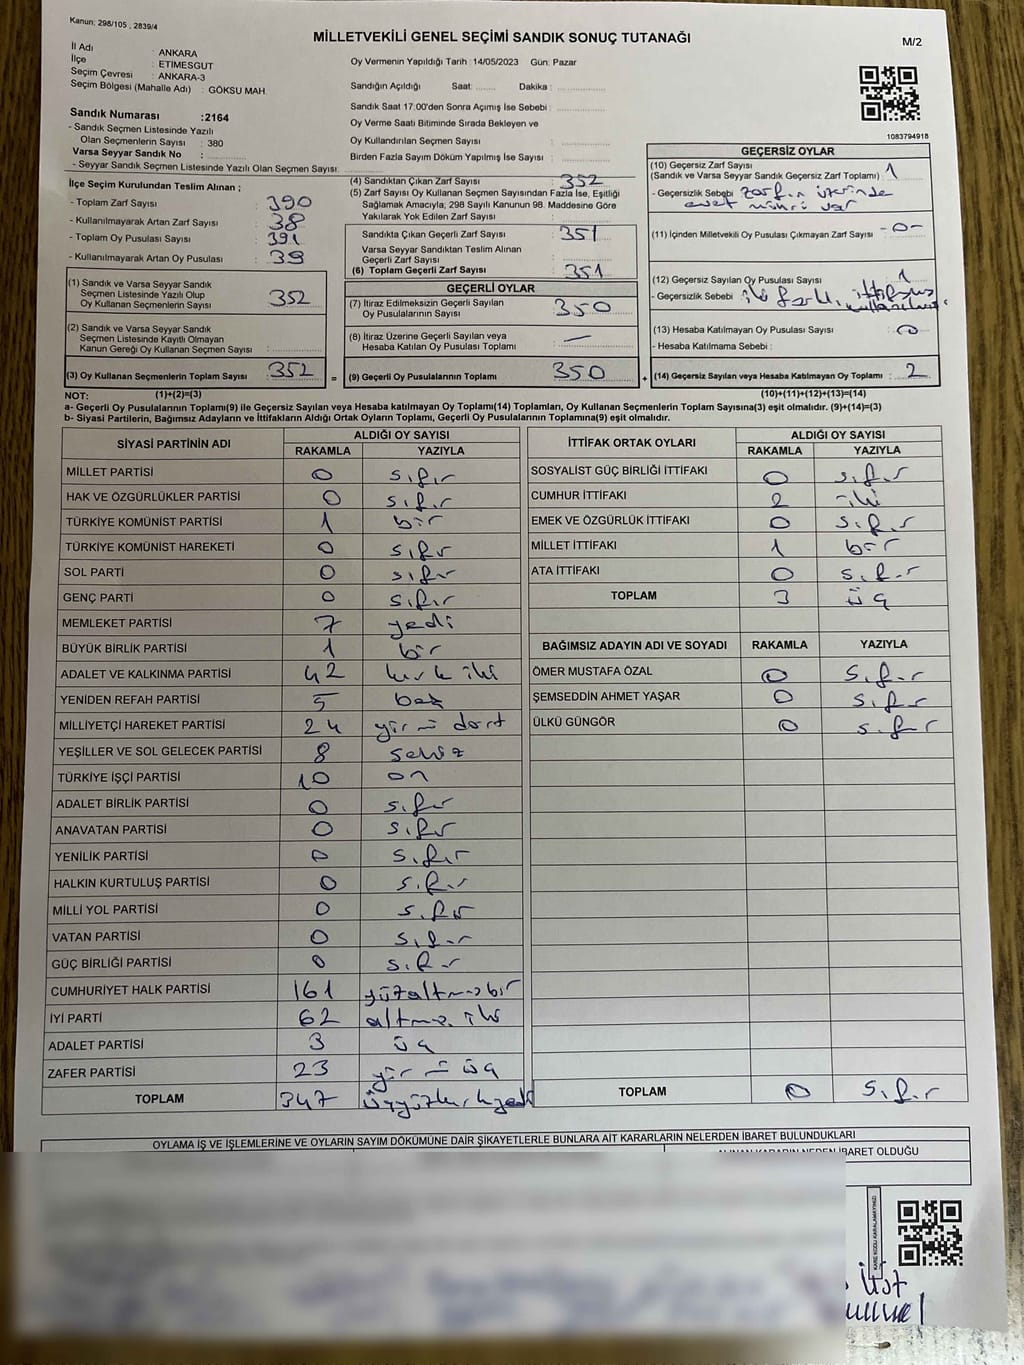 Kanun: 298/105 , 2839/4
MİLLETVEKİLİ GENEL SEÇİMİ SANDIK SONUÇ TUTANAĞI
M/2
İl Adı : ANKARA
İlçe : ETİMESGUT
Seçim Çevresi : ANKARA-3
Seçim Bölgesi (Mahalle Adı) : GÖKSU MAH.
Oy Vermenin Yapıldığı Tarih : 14/05/2023 Gün: Pazar
Sandığın Açıldığı Saat: ........ Dakika : ....................
Sandık Saat 17:00'den Sonra Açımış İse Sebebi : ....................
Oy Verme Saati Bitiminde Sırada Bekleyen ve
Oy Kullandırılan Seçmen Sayısı : ....................
Birden Fazla Sayım Döküm Yapılmış İse Sayısı : ....................
1083794918
Sandık Numarası :2164
- Sandık Seçmen Listesinde Yazılı
Olan Seçmenlerin Sayısı : 380
Varsa Seyyar Sandık No : ....................
- Seyyar Sandık Listesinde Yazılı Olan Seçmen Sayısı: ....................
İlçe Seçim Kurulundan Teslim Alınan ;
- Toplam Zarf Sayısı : 390
- Kullanılmayarak Artan Zarf Sayısı : 38
- Toplam Oy Pusulası Sayısı : 391
- Kullanılmayarak Artan Oy Pusulası : 39
(1) Sandık ve Varsa Seyyar Sandık
Seçmen Listesinde Yazılı Olup
Oy Kullanan Seçmenlerin Sayısı : 352
(2) Sandık ve Varsa Seyyar Sandık
Seçmen Listesinde Kayıtlı Olmayan
Kanun Gereği Oy Kullanan Seçmen Sayısı : ....................
(3) Oy Kullanan Seçmenlerin Toplam Sayısı : 352 =
(4) Sandıktan Çıkan Zarf Sayısı : 352
(5) Zarf Sayısı Oy Kullanan Seçmen Sayısından Fazla İse, Eşitliği
Sağlamak Amacıyla; 298 Sayılı Kanunun 98. Maddesine Göre
Yakılarak Yok Edilen Zarf Sayısı : ....................
Sandıkta Çıkan Geçerli Zarf Sayısı : 351
Varsa Seyyar Sandıktan Teslim Alınan
Geçerli Zarf Sayısı : ....................
(6) Toplam Geçerli Zarf Sayısı : 351
GEÇERLİ OYLAR
(7) İtiraz Edilmeksizin Geçerli Sayılan
Oy Pusulalarının Sayısı : 350
(8) İtiraz Üzerine Geçerli Sayılan veya
Hesaba Katılan Oy Pusulası Toplamı : —
(9) Geçerli Oy Pusulalarının Toplamı : 350 +
GEÇERSİZ OYLAR
(10) Geçersiz Zarf Sayısı
(Sandık ve Varsa Seyyar Sandık Geçersiz Zarf Toplamı) : 1
- Geçersizlik Sebebi : Zarfın üzerinde
evet mührü var
(11) İçinden Milletvekili Oy Pusulası Çıkmayan Zarf Sayısı : -0-
(12) Geçersiz Sayılan Oy Pusulası Sayısı : 1
- Geçersizlik Sebebi : iki farklı ittifaka
kullanılmış.
(13) Hesaba Katılmayan Oy Pusulası Sayısı : 0
- Hesaba Katılmama Sebebi :
(14) Geçersiz Sayılan veya Hesaba Katılmayan Oy Toplamı : 2
NOT: (1)+(2)=(3) (10)+(11)+(12)+(13)=(14)
a- Geçerli Oy Pusulasının Toplamı(9) ile Geçersiz Sayılan veya Hesaba katılmayan Oy Toplamı(14) Toplamları, Oy Kullanan Seçmenlerin Toplam Sayısına(3) eşit olmalıdır. (9)+(14)=(3)
b- Siyasi Partilerin, Bağımsız Adayların ve İttifakların Aldığı Ortak Oyların Toplamı, Geçerli Oy Pusulalarının Toplamına(9) eşit olmalıdır.
SİYASİ PARTİNİN ADI ALDIĞI OY SAYISI
RAKAMLA YAZIYLA
MİLLET PARTİSİ 0 sıfır
HAK VE ÖZGÜRLÜKLER PARTİSİ 0 sıfır
TÜRKİYE KOMÜNİST PARTİSİ 1 bir
TÜRKİYE KOMÜNİST HAREKETİ 0 sıfır
SOL PARTİ 0 sıfır
GENÇ PARTİ 0 sıfır
MEMLEKET PARTİSİ 7 yedi
BÜYÜK BİRLİK PARTİSİ 1 bir
ADALET VE KALKINMA PARTİSİ 42 kırk iki
YENİDEN REFAH PARTİSİ 5 beş
MİLLİYETÇİ HAREKET PARTİSİ 24 yirmi dört
YEŞİLLER VE SOL GELECEK PARTİSİ 8 sekiz
TÜRKİYE İŞÇİ PARTİSİ 10 on
ADALET BİRLİK PARTİSİ 0 sıfır
ANAVATAN PARTİSİ 0 sıfır
YENİLİK PARTİSİ 0 sıfır
HALKIN KURTULUŞ PARTİSİ 0 sıfır
MİLLİ YOL PARTİSİ 0 sıfır
VATAN PARTİSİ 0 sıfır
GÜÇ BİRLİĞİ PARTİSİ 0 sıfır
CUMHURİYET HALK PARTİSİ 161 yüzaltmışbir
İYİ PARTİ 62 altmış iki
ADALET PARTİSİ 3 üç
ZAFER PARTİSİ 23 yirmi üç
TOPLAM 347 üçyüzkırkyedi
İTTİFAK ORTAK OYLARI ALDIĞI OY SAYISI
RAKAMLA YAZIYLA
SOSYALİST GÜÇ BİRLİĞİ İTTİFAKI 0 sıfır
CUMHUR İTTİFAKI 2 iki
EMEK VE ÖZGÜRLÜK İTTİFAKI 0 sıfır
MİLLET İTTİFAKI 1 bir
ATA İTTİFAKI 0 sıfır
TOPLAM 3 üç
BAĞIMSIZ ADAYIN ADI VE SOYADI RAKAMLA YAZIYLA
ÖMER MUSTAFA ÖZAL 0 sıfır
ŞEMSEDDİN AHMET YAŞAR 0 sıfır
ÜLKÜ GÜNGÖR 0 sıfır
TOPLAM 0 sıfır
OYLAMA İŞ VE İŞLEMLERİNE VE OYLARIN SAYIM DÖKÜMÜNE DAİR ŞİKAYETLERLE BUNLARA AİT KARARLARIN NELERDEN İBARET BULUNDUKLARI
ALINAN KARARIN NEDEN İBARET OLDUĞU
KARE KODU KARALAMAYINIZ!